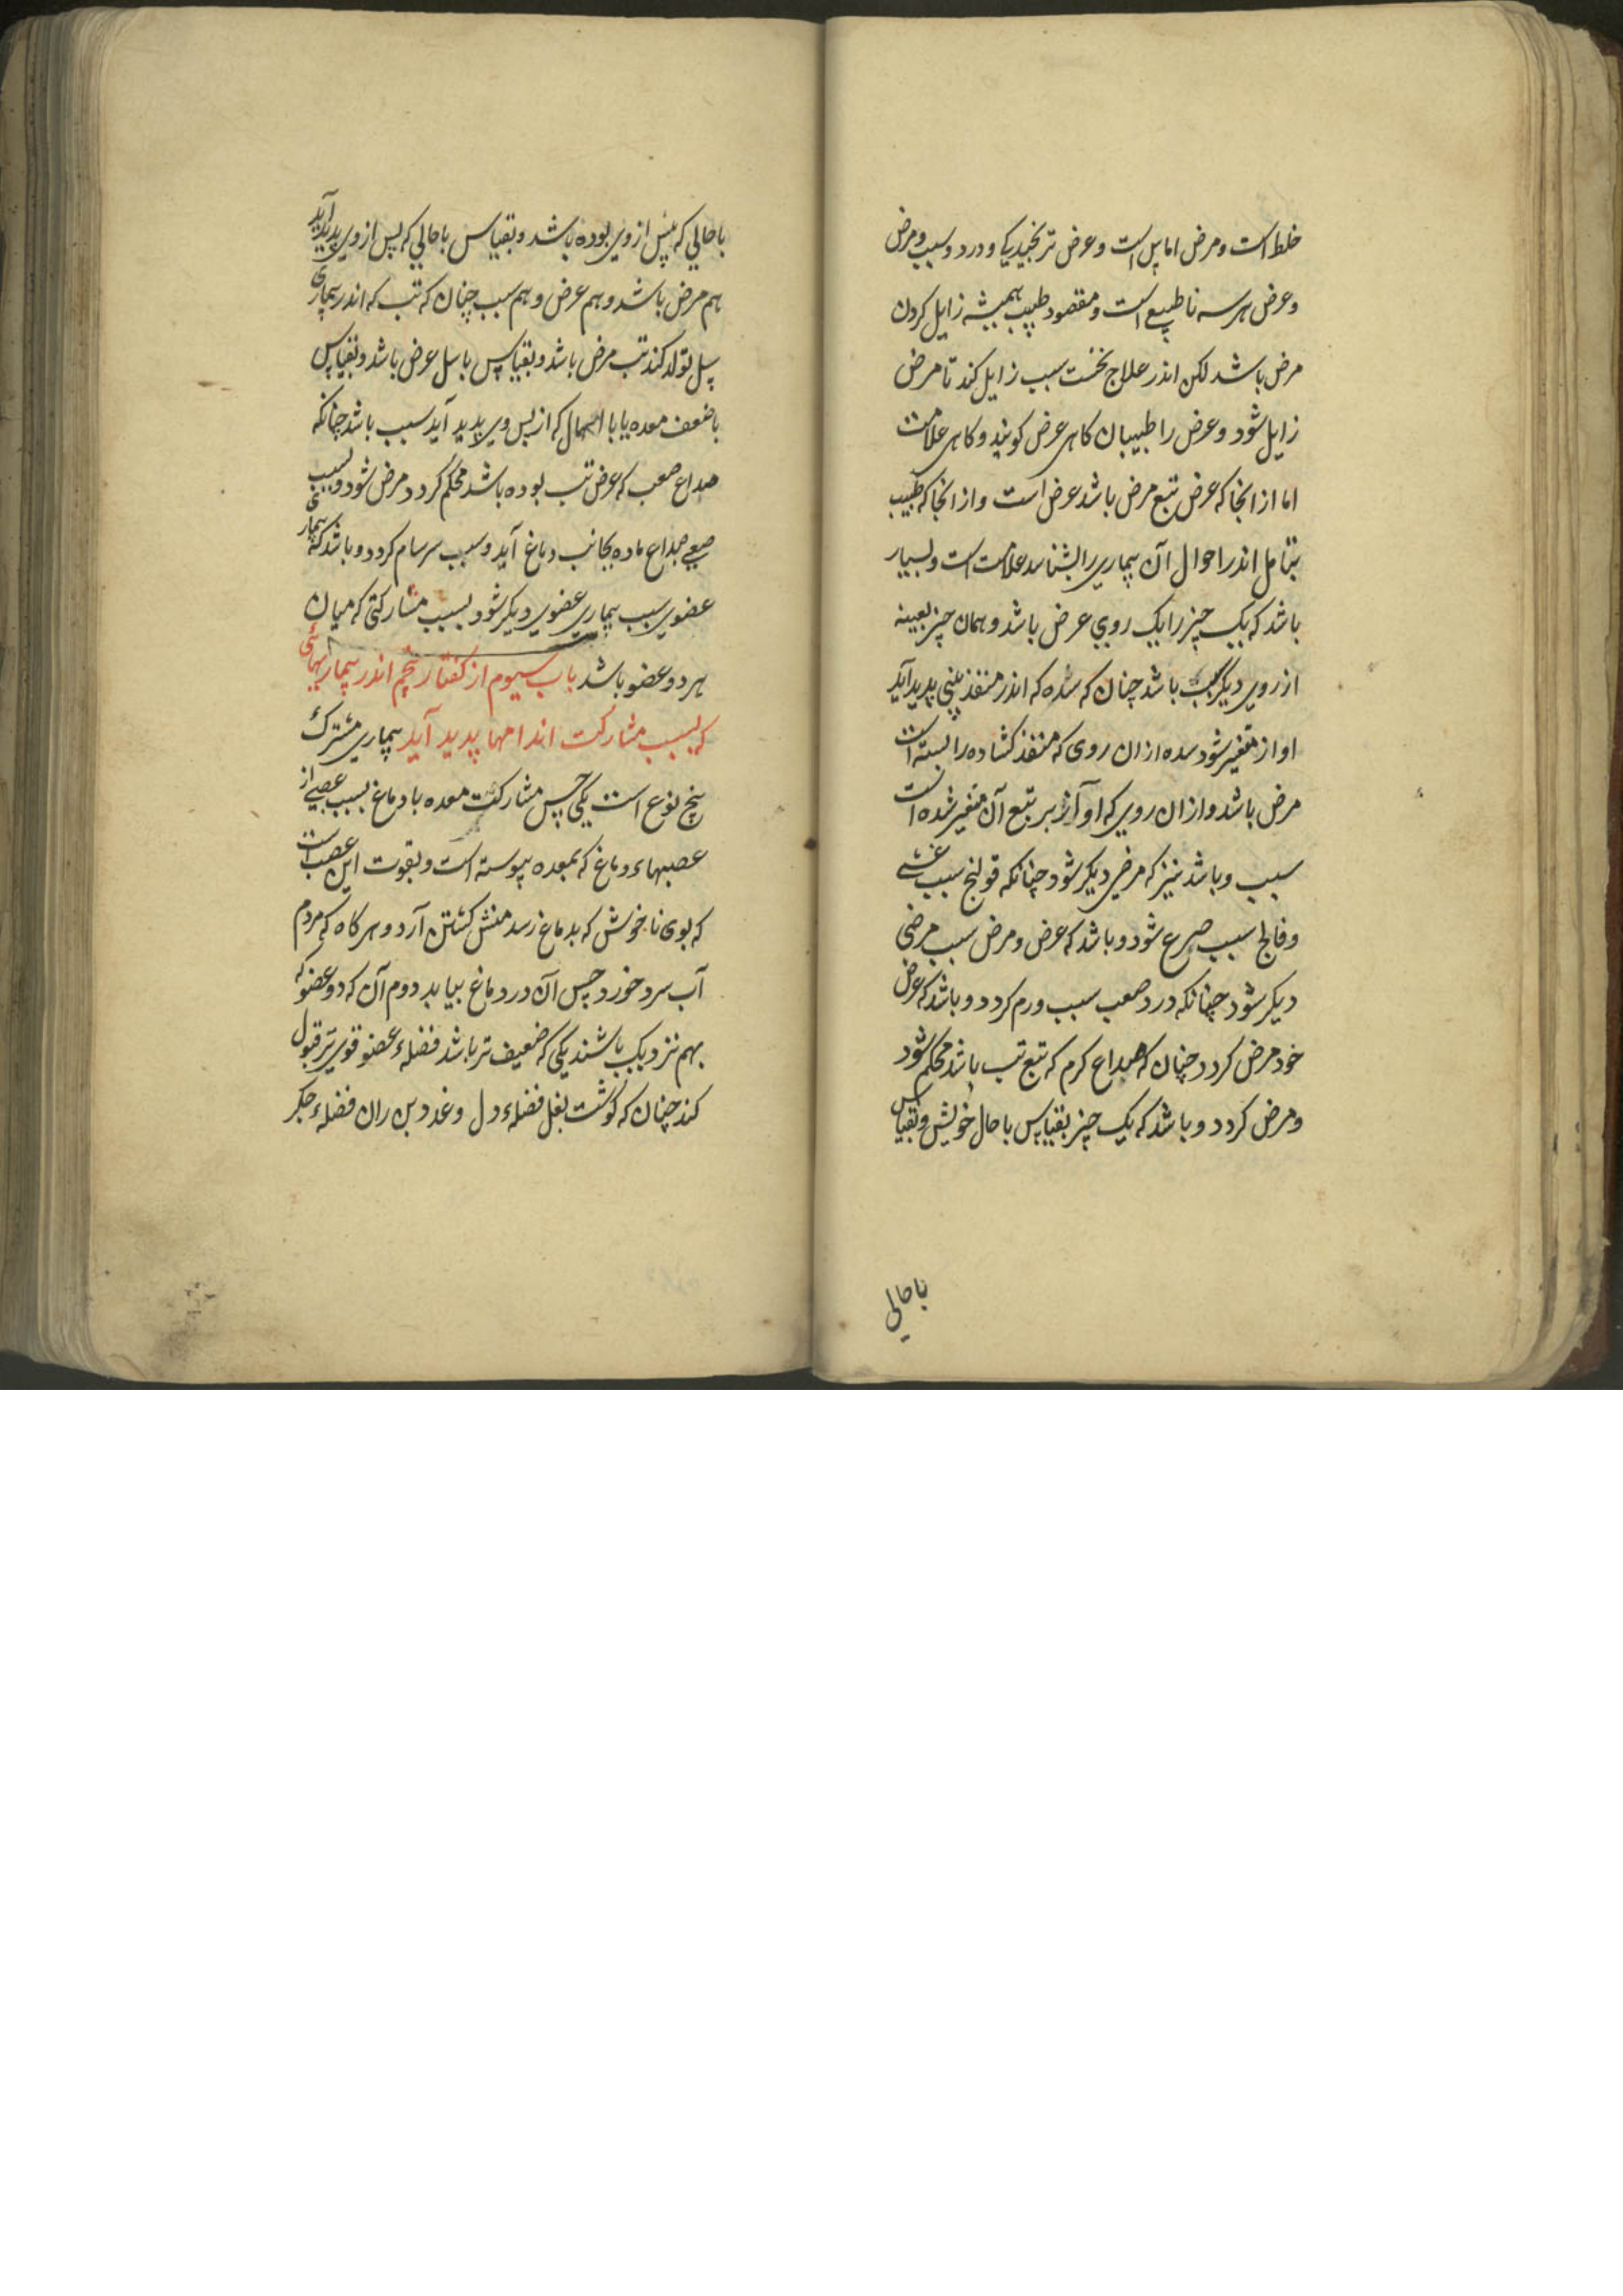 خلط است و مرض اماس است و عرض ترنجیدیکی و درد و سبب و مرض
و عرض هر سه نا طبیعی است و مقصود طبیب همیشه زایل کردن
مرض باشد لکن اندر علاج نخست سبب زایل کند تا مرض
زایل شود و عرض را طبیبان کاهی عرض کویند و کاهی علامت
اما از انجا که عرض تبع مرض باشد عرض است و از انجا که طبیب
بتامل اندر احوال آن بیماری را بشناسد علامت است و بسیار
باشد که یک چیز را یک روی عرض باشد و همان چیز بعینه
از روی دیگر سبب باشد چنان که سده که اندر منفذ بینی پدید آید
اواز متغیر شود سده از ان روی که منفذ کشاده را بسته است
مرض باشد و از ان روی که اواز بر تبع آن متغیر شده است
سبب و باشد نیز که مرضی دیکر شود چنانکه قولنج سبب غشی
و فالج سبب صرع شود و باشد که عرض و مرض سبب مرضی
دیکر شود چنانکه درد صعب سبب ورم کردد و باشد که عرض
خود مرض کردد چنان که صداع کرم که تبع تب باشد محکم شود
و مرض کردد و باشد که یک چیز بقیاس با حال خویش و بقیاس
با حالی
با حالی که پیش از وی بوده باشد و بقیاس با حالی که پس از وی پدید آید
هم مرض باشد و هم عرض و هم سبب چنان که تب که اندر بیماری
سل تولد کند تب مرض باشد و بقیاس با سل عرض باشد و بقیاس
با ضعف معده یا با اسهال که از پس وی پدید آید سبب باشد چنانکه
صداع صعب که عرض تب بوده باشد محکم کردد مرض شود و بسبب
صعبی صداع ماده بجانب دماغ آید و سبب سرسام کردد و باشد که بیماری
عضوی سبب بیماری عضوی دیکر شود بسبب مشارکتی که میان
هر دو عضو باشد باب سیوم از کفتار پنجم اندر بیماریهائی
که بسبب مشارکت اندامها پدید آید بیماری مشترک
پنج نوع است یکی حس مشارکت معده با دماغ بسبب عصبی از
عصبهاء دماغ که بمعده پیوسته است و بقوت این عصب است
که بوی ناخوش که بدماغ رسد منش کشتن آرد و هر کاه که مردم
آب سرد خورد حس آن در دماغ بیابد دوم آن که دو عضو که
بهم نزدیک باشند یکی که ضعیف تر باشد فضلهء عضو قوی تر قبول
کند چنان که کوشت بغل فضلهء دل و غدد بن ران فضلهء جکر